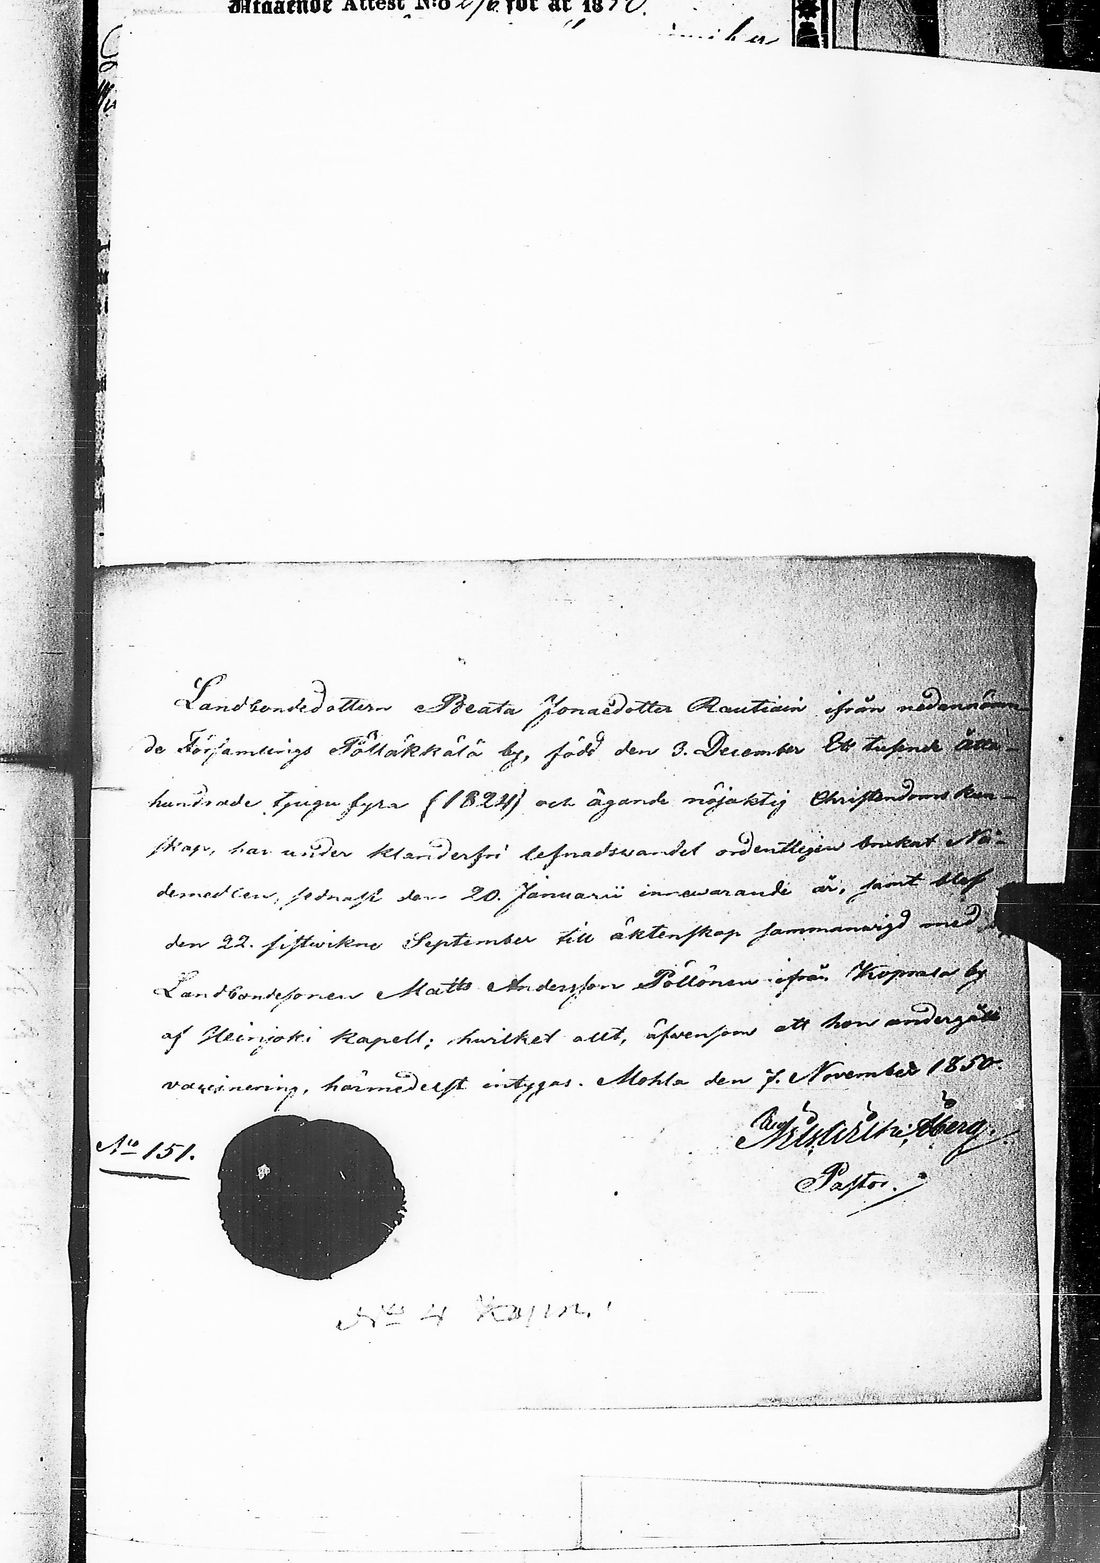 Utgående Attest N:o för år 18
Landbondedottern Beata Jonaedotter Rautiain ifrån nedannämn-
de Församlings Pölläkkälä by, född den 3. December Ett tusende åtta-
hundrade tjugu fyra (1824) och ägande nöjaktig Christendoms kun-
skap, har under klanderfri lefnadswandel ordentligen brukat Nå-
demedlen, sednast den 20. Januarii innewarande år, samt blef
den 22. sistwikne September till äktenskap sammanwigd med
Landbondesonen Matts Andersson Pöllönen ifrån Koprala by
af Heinjoki Kapell; hwilket allt, äfwensom att hon undergått
vaccinering, härmedelst intygas. Mohla den 7. November 1850.
berg.
Pastor.
No 151.
No 4